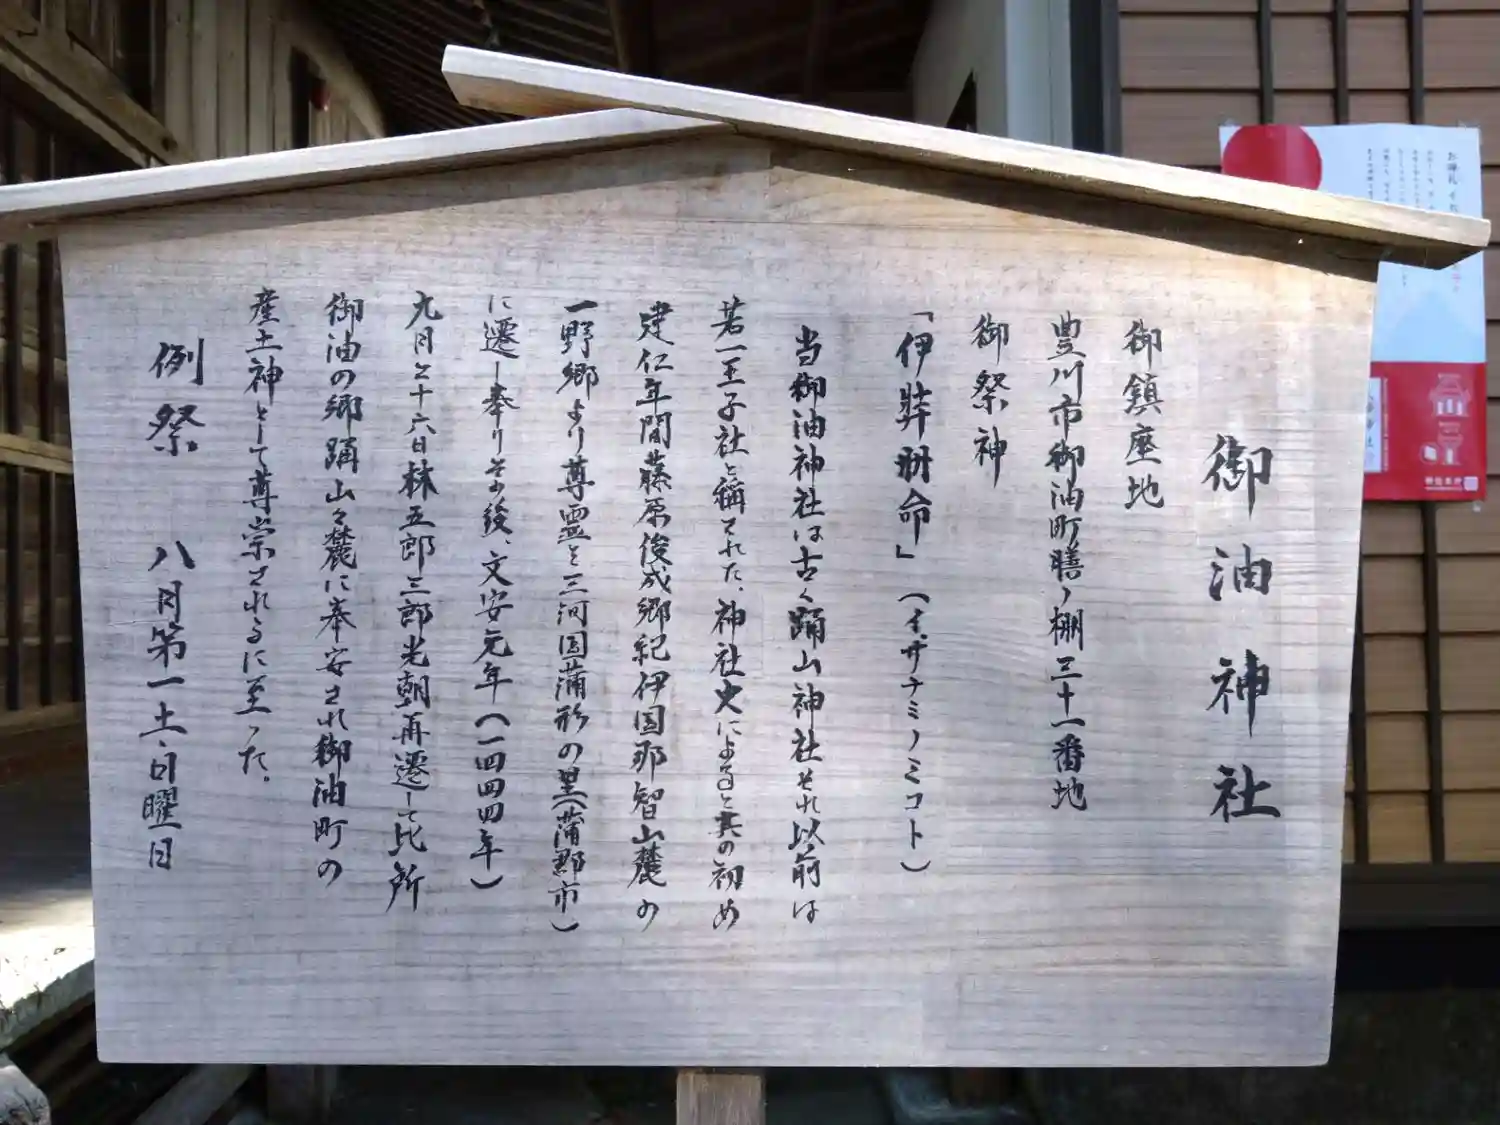 御油神社
御鎮座地
豊川市御油町膳ノ棚三十一番地
御祭神
「伊弉册命」(イザナミノミコト)
当御油神社は古く踊山神社それ以前は
若一王子社と稱された。神社史によると其の初め
建仁年間藤原俊成郷紀伊国那智山麓の
一野郷より尊霊を三河国蒲形の里(蒲郡市)
に遷し奉りその後、文安元年(一四四四年)
九月二十六日林五郎三郎光朝再遷して比所
御油の郷踊山々麓に奉安され御油町の
産土神として尊崇されるに至った。
例祭 八月第一土・日曜日